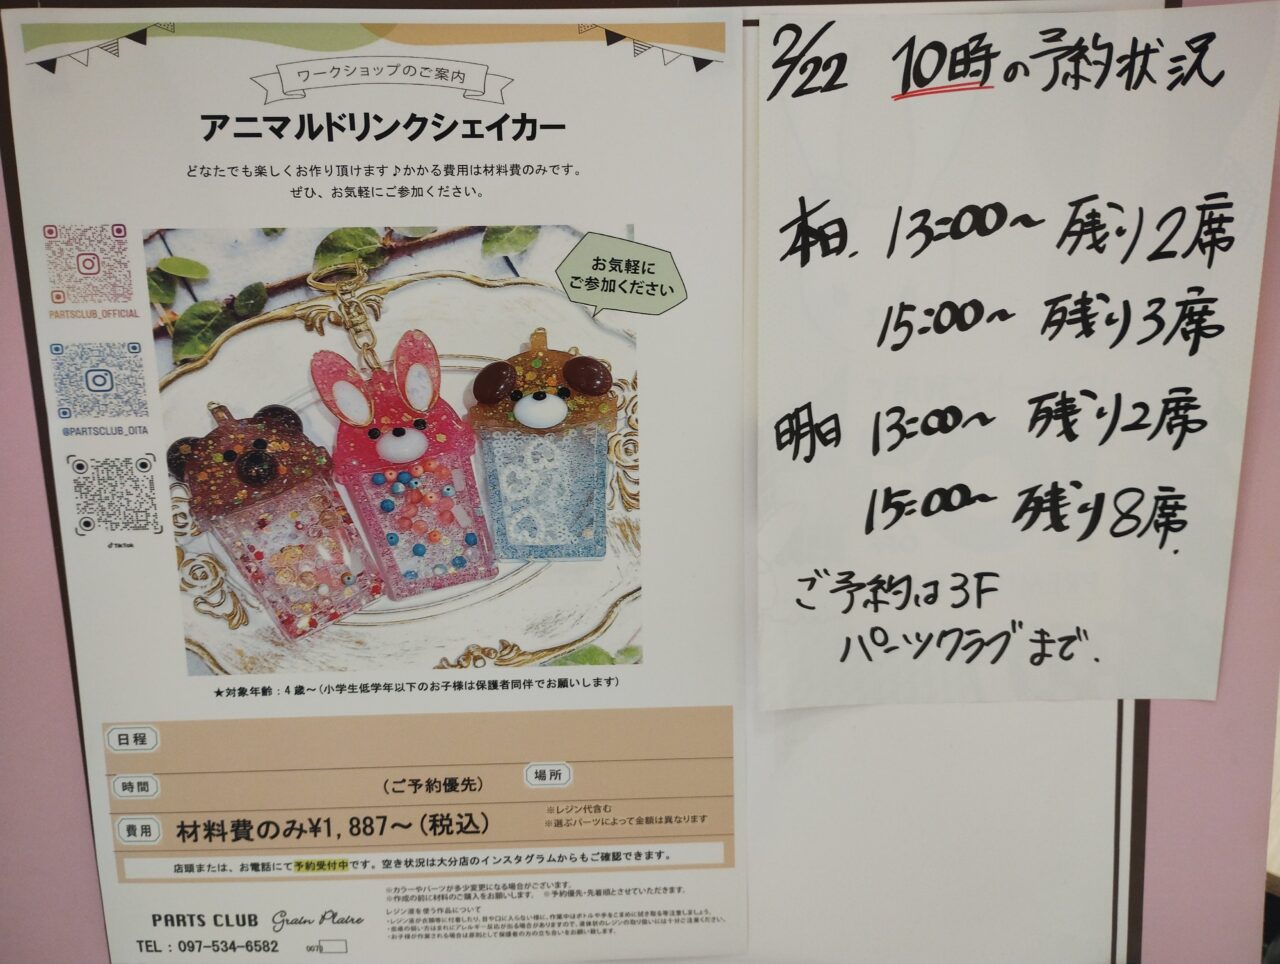 ワークショップのご案内
アニマルドリンクシェイカー
どなたでも楽しくお作り頂けます♪かかる費用は材料費のみです。
ぜひ、お気軽にご参加ください。
お気軽に
ご参加ください
PARTSCLUB_OFFICIAL
@PARTSCLUB_OITA
TikTok
★対象年齢：4歳～(小学生低学年以下のお子様は保護者同伴でお願いします)
日程
時間 (ご予約優先) 場所
費用 材料費のみ¥1,887～(税込)
※レジン代含む
※選ぶパーツによって金額は異なります
店頭または、お電話にて予約受付中です。空き状況は大分店のインスタグラムからもご確認できます。
※カラーやパーツが多少変更になる場合がございます。
※作成の前に材料のご購入をお願いします。 ※予約優先・先着順とさせていただきます。
レジン液を使う作品について
PARTS CLUB Grain Plaire
TEL：097-534-6582
2/22 10時の予約状況
本日. 13:00～ 残り2席
15:00～ 残り3席
明日 13:00～ 残り2席
15:00～ 残り8席.
ご予約は3F
パーツクラブまで.